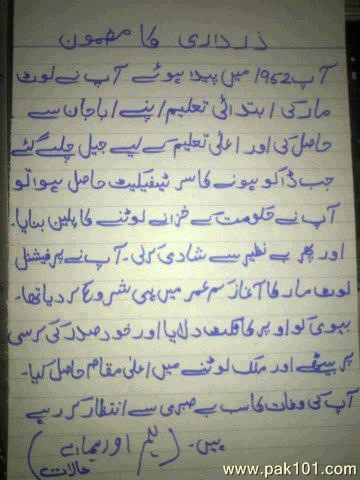 زرداری کا مضمون
آپ 1952 میں پیدا ہوئے آپ نے لوٹ
مار کی ابتدائی تعلیم اپنے اباجان سے
حاصل کی اور اعلیٰ تعلیم کے لیے جیل چلے گئے
جب ڈاکو ہونے کا سرٹیفیکیٹ حاصل ہوا تو
آپ نے حکومت کے خزانے لوٹنے کا پلین بنایا۔
اور پھر بے نظیر سے شادی کرلی۔ آپ نے پرفیشنل
لوٹ مار کا آغاز کم عمر میں ہی شروع کر دیا تھا۔
بیوی کو اوپر کا ٹکٹ دلایا اور خود صدر کی کرسی
پر بیٹھے اور ملک لوٹنے میں اعلیٰ مقام حاصل کیا۔
آپ کی وفات کا سب بے صبری سے انتظار کر رہے
ہیں۔ (یلم اور ہمارے
حالات)
www.pak101.com